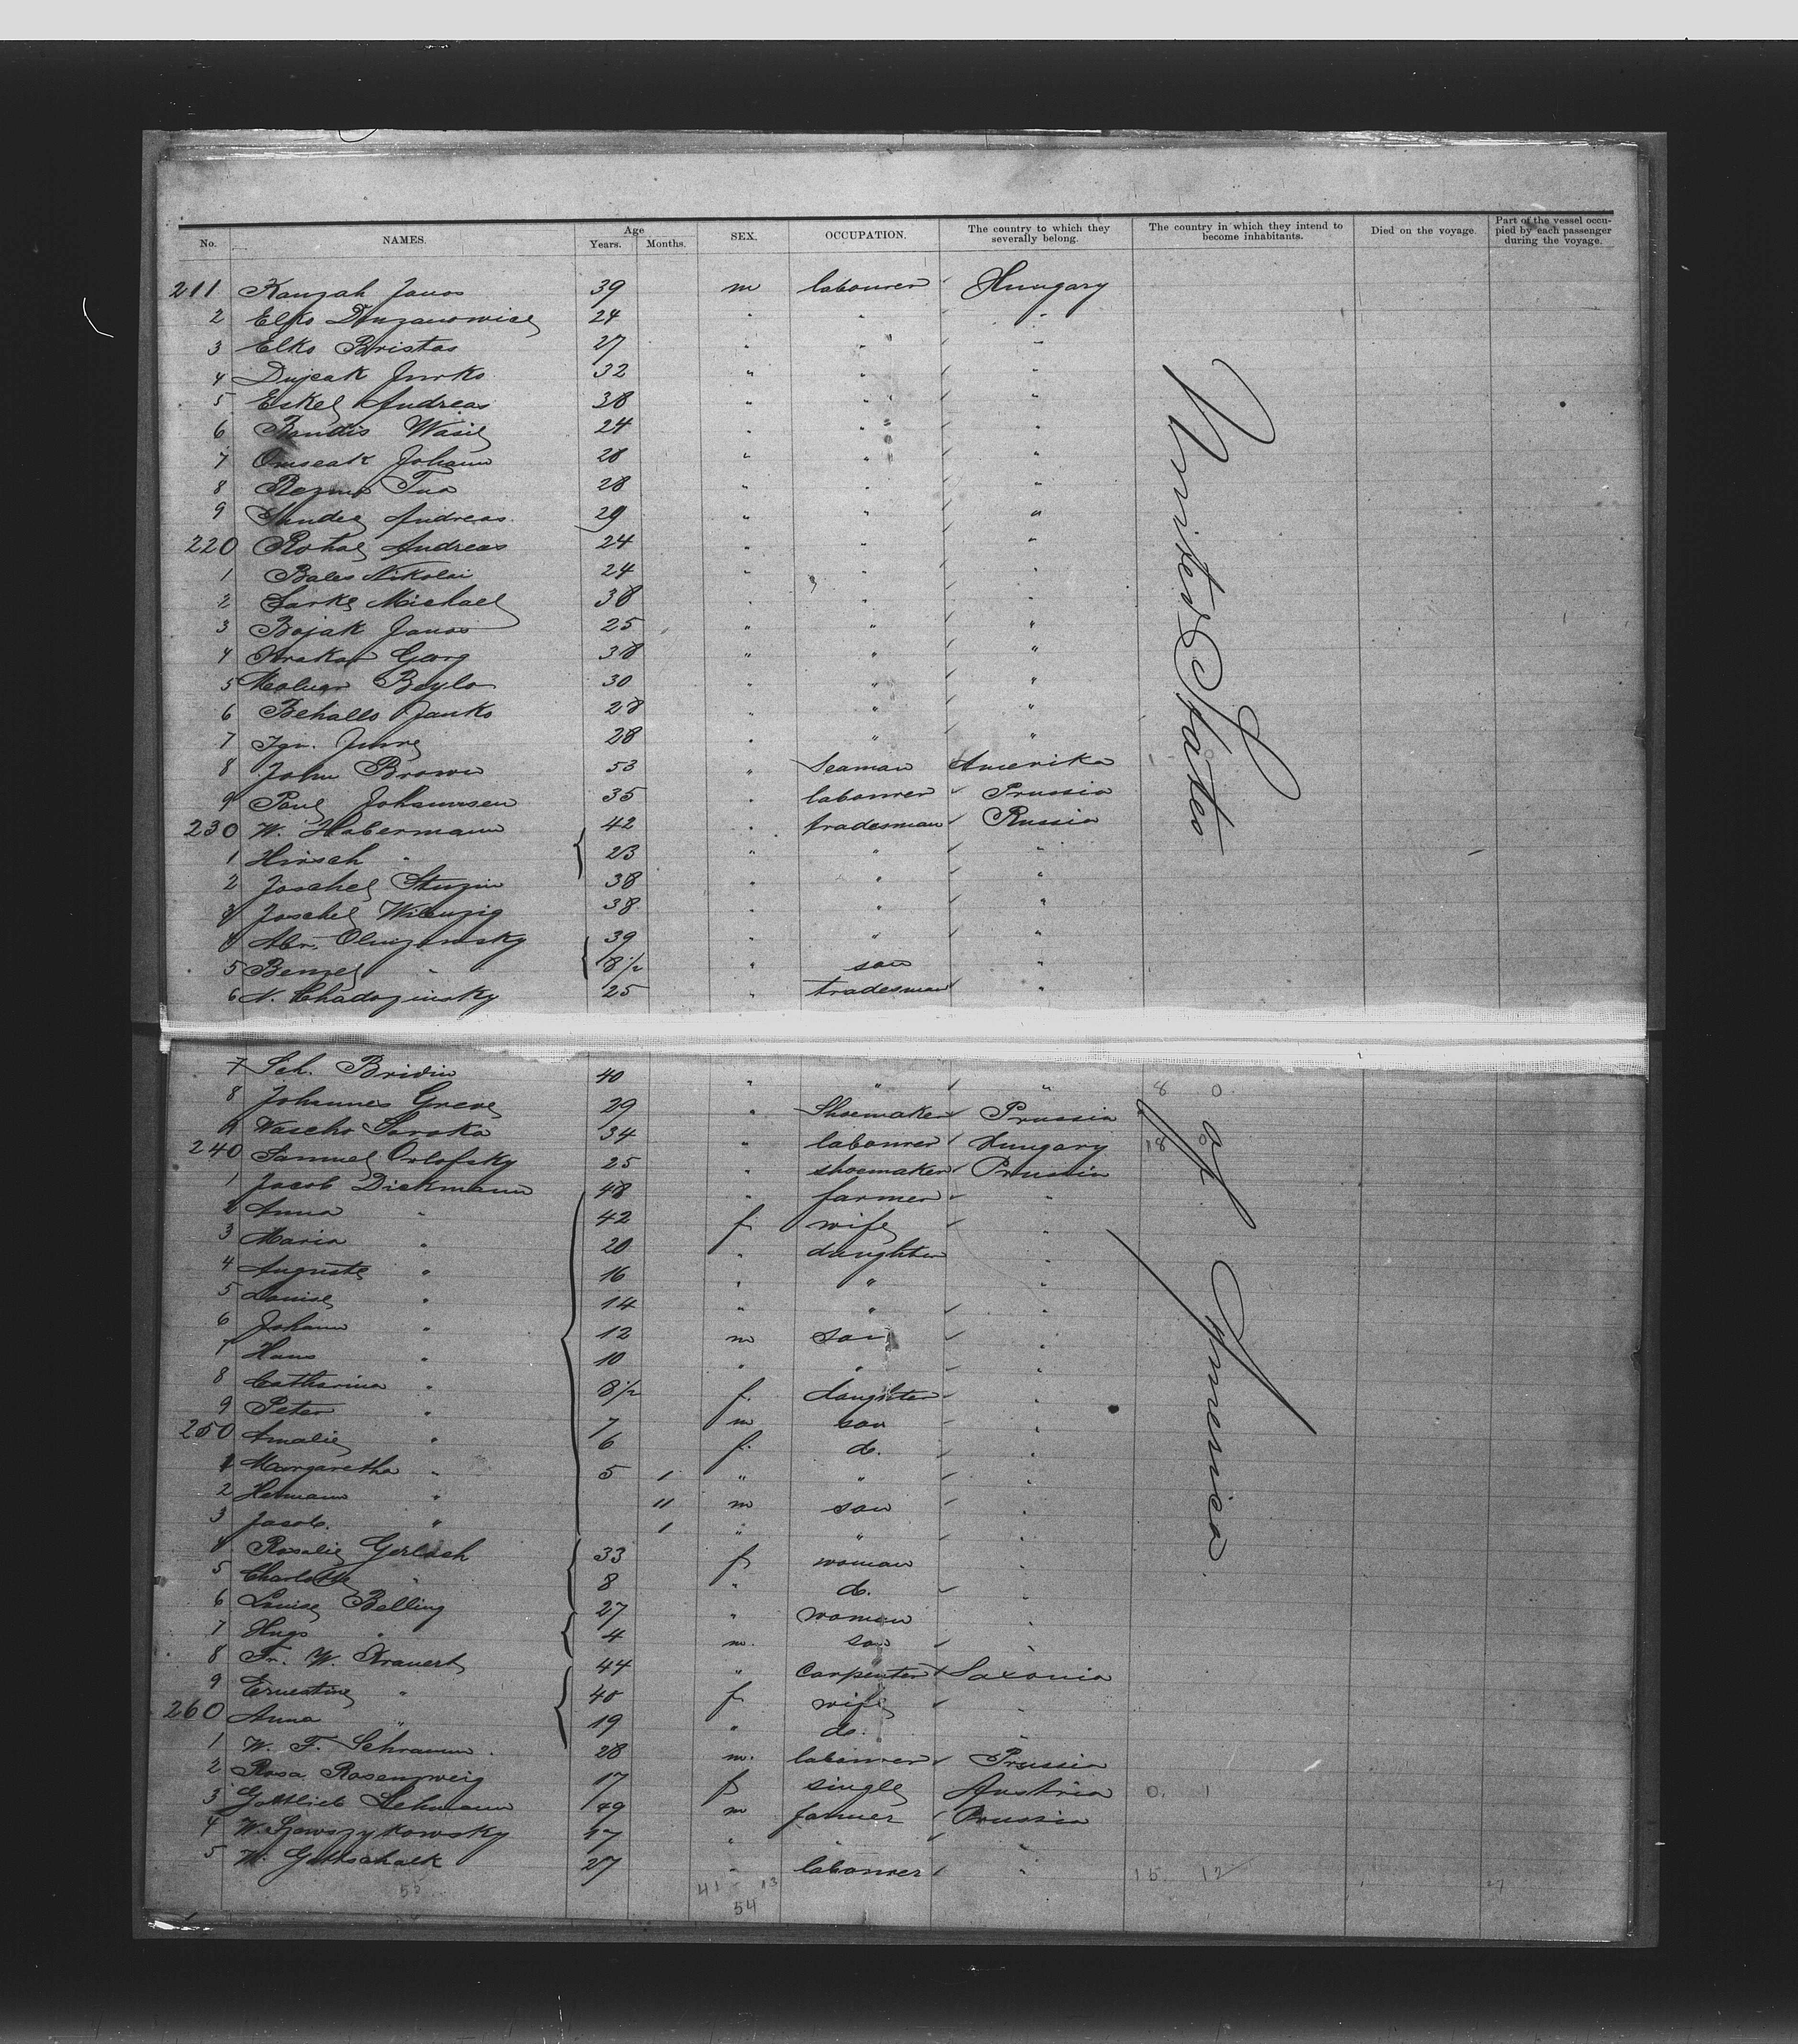 No. NAMES. Age Years. Months. SEX. OCCUPATION. The country to which they severally belong. The country in which they intend to become inhabitants. Died on the voyage. Part of the vessel occupied by each passenger during the voyage.
211 Kanzah Janos 39 m labourer Hungary
2 Elko 24 " " "
3 Elko Bristas 27 " " "
4 Dujcak Jurko 32 " " "
5 Eskel Andreas 38 " " "
6 Wasil 24 " " "
7 Omseak Johann 28 " " "
8 28 " " "
9 Andreas 29 " " "
220 Rohal Andreas 24 " " "
1 Bales Nikolai 24 " " "
2 Sarky Michael 38 " " "
3 Bojak Janos 25 " " "
4 Hrakar Georg 38 " " "
5 Beylo 30 " " "
6 Behallo Janko 28 " " "
7 Ign. 28 " " "
8 John Brown 53 " Seaman Amerika
9 Paul Johannsen 35 " labourer Prussia
230 W. Habermann 42 " tradesman Russia
1 Hirsch " 23 " " "
2 Joschel 38 " " "
3 Joschel 38 " " "
4 Abr. 39 " " "
5 Benzel " 8½ " son "
6 N. Chadozinsky 25 " tradesman "
7 Sch. Bridin 40 " " "
8 Johannes Greve 29 " Shoemaker Prussia
9 Wascho Soroka 34 " labourer Hungary
240 Samuel Orlofsky 25 " shoemaker Prussia
1 Jacob Dickmann 48 " farmer "
2 Anna " 42 f. wife "
3 Maria " 20 " daughter "
4 Auguste " 16 " " "
5 Louise " 14 " " "
6 Johann " 12 m son "
7 Hans " 10 " " "
8 Catharina " 8½ f. daughter "
9 Peter " 7 m son "
250 Amalie " 6 f. d. "
1 Margaretha " 5 1 " " "
2 Hermann " 11 m son "
3 Jacob. " 1 " " "
4 Rosalie Gerlach 33 f woman "
5 Charlotte " 8 " d. "
6 Louise Belling 27 " woman "
7 Hugo " 4 m. son "
8 Fr. W. Krauert 44 " Carpenter Saxonia
9 Ernestine " 40 f wife "
260 Anna " 19 " d. "
1 W. F. Schramm. 28 m. labourer Prussia
2 Rosa Rosenzweig 17 f single Austria
3 Gottlieb Lehmann 49 m farmer Prussia
4 W. 17 " " "
5 W. Gottschalk 27 " labourer "
United States of America.
55 41 - 13 15 12
54